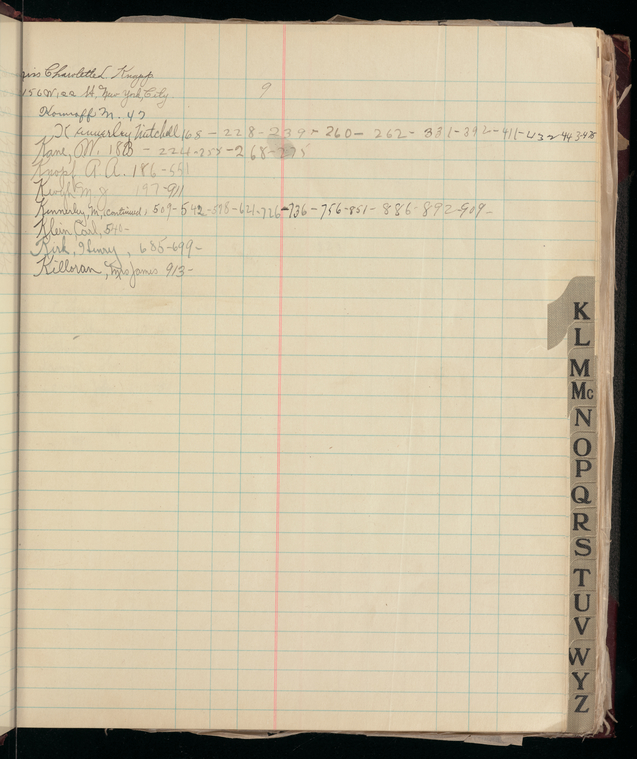 Miss Charolette L. Knapp
156 W. 122 St, New York, City
9
Komroff M. 47
Kennerley Mitchell 168 - 228 - 239 - 260 - 262 - 331 - 392 - 411 - 432 - 443 - 478
Kane, W. 188 - 224 - 258 - 268 - 275
Knopf A. A. 186 - 551
M. J. 197 - 911
Kennerley, M, continued, 509 - 542 - 598 - 621 - 726 - 736 - 756 - 851 - 886 - 892 - 909 -
Klein Carl, 540 -
Kirk, Henry, 685 - 699 -
Killoran, Mrs James 913 -
K
L
M
Mc
N
O
P
Q
R
S
T
U
V
W
Y
Z